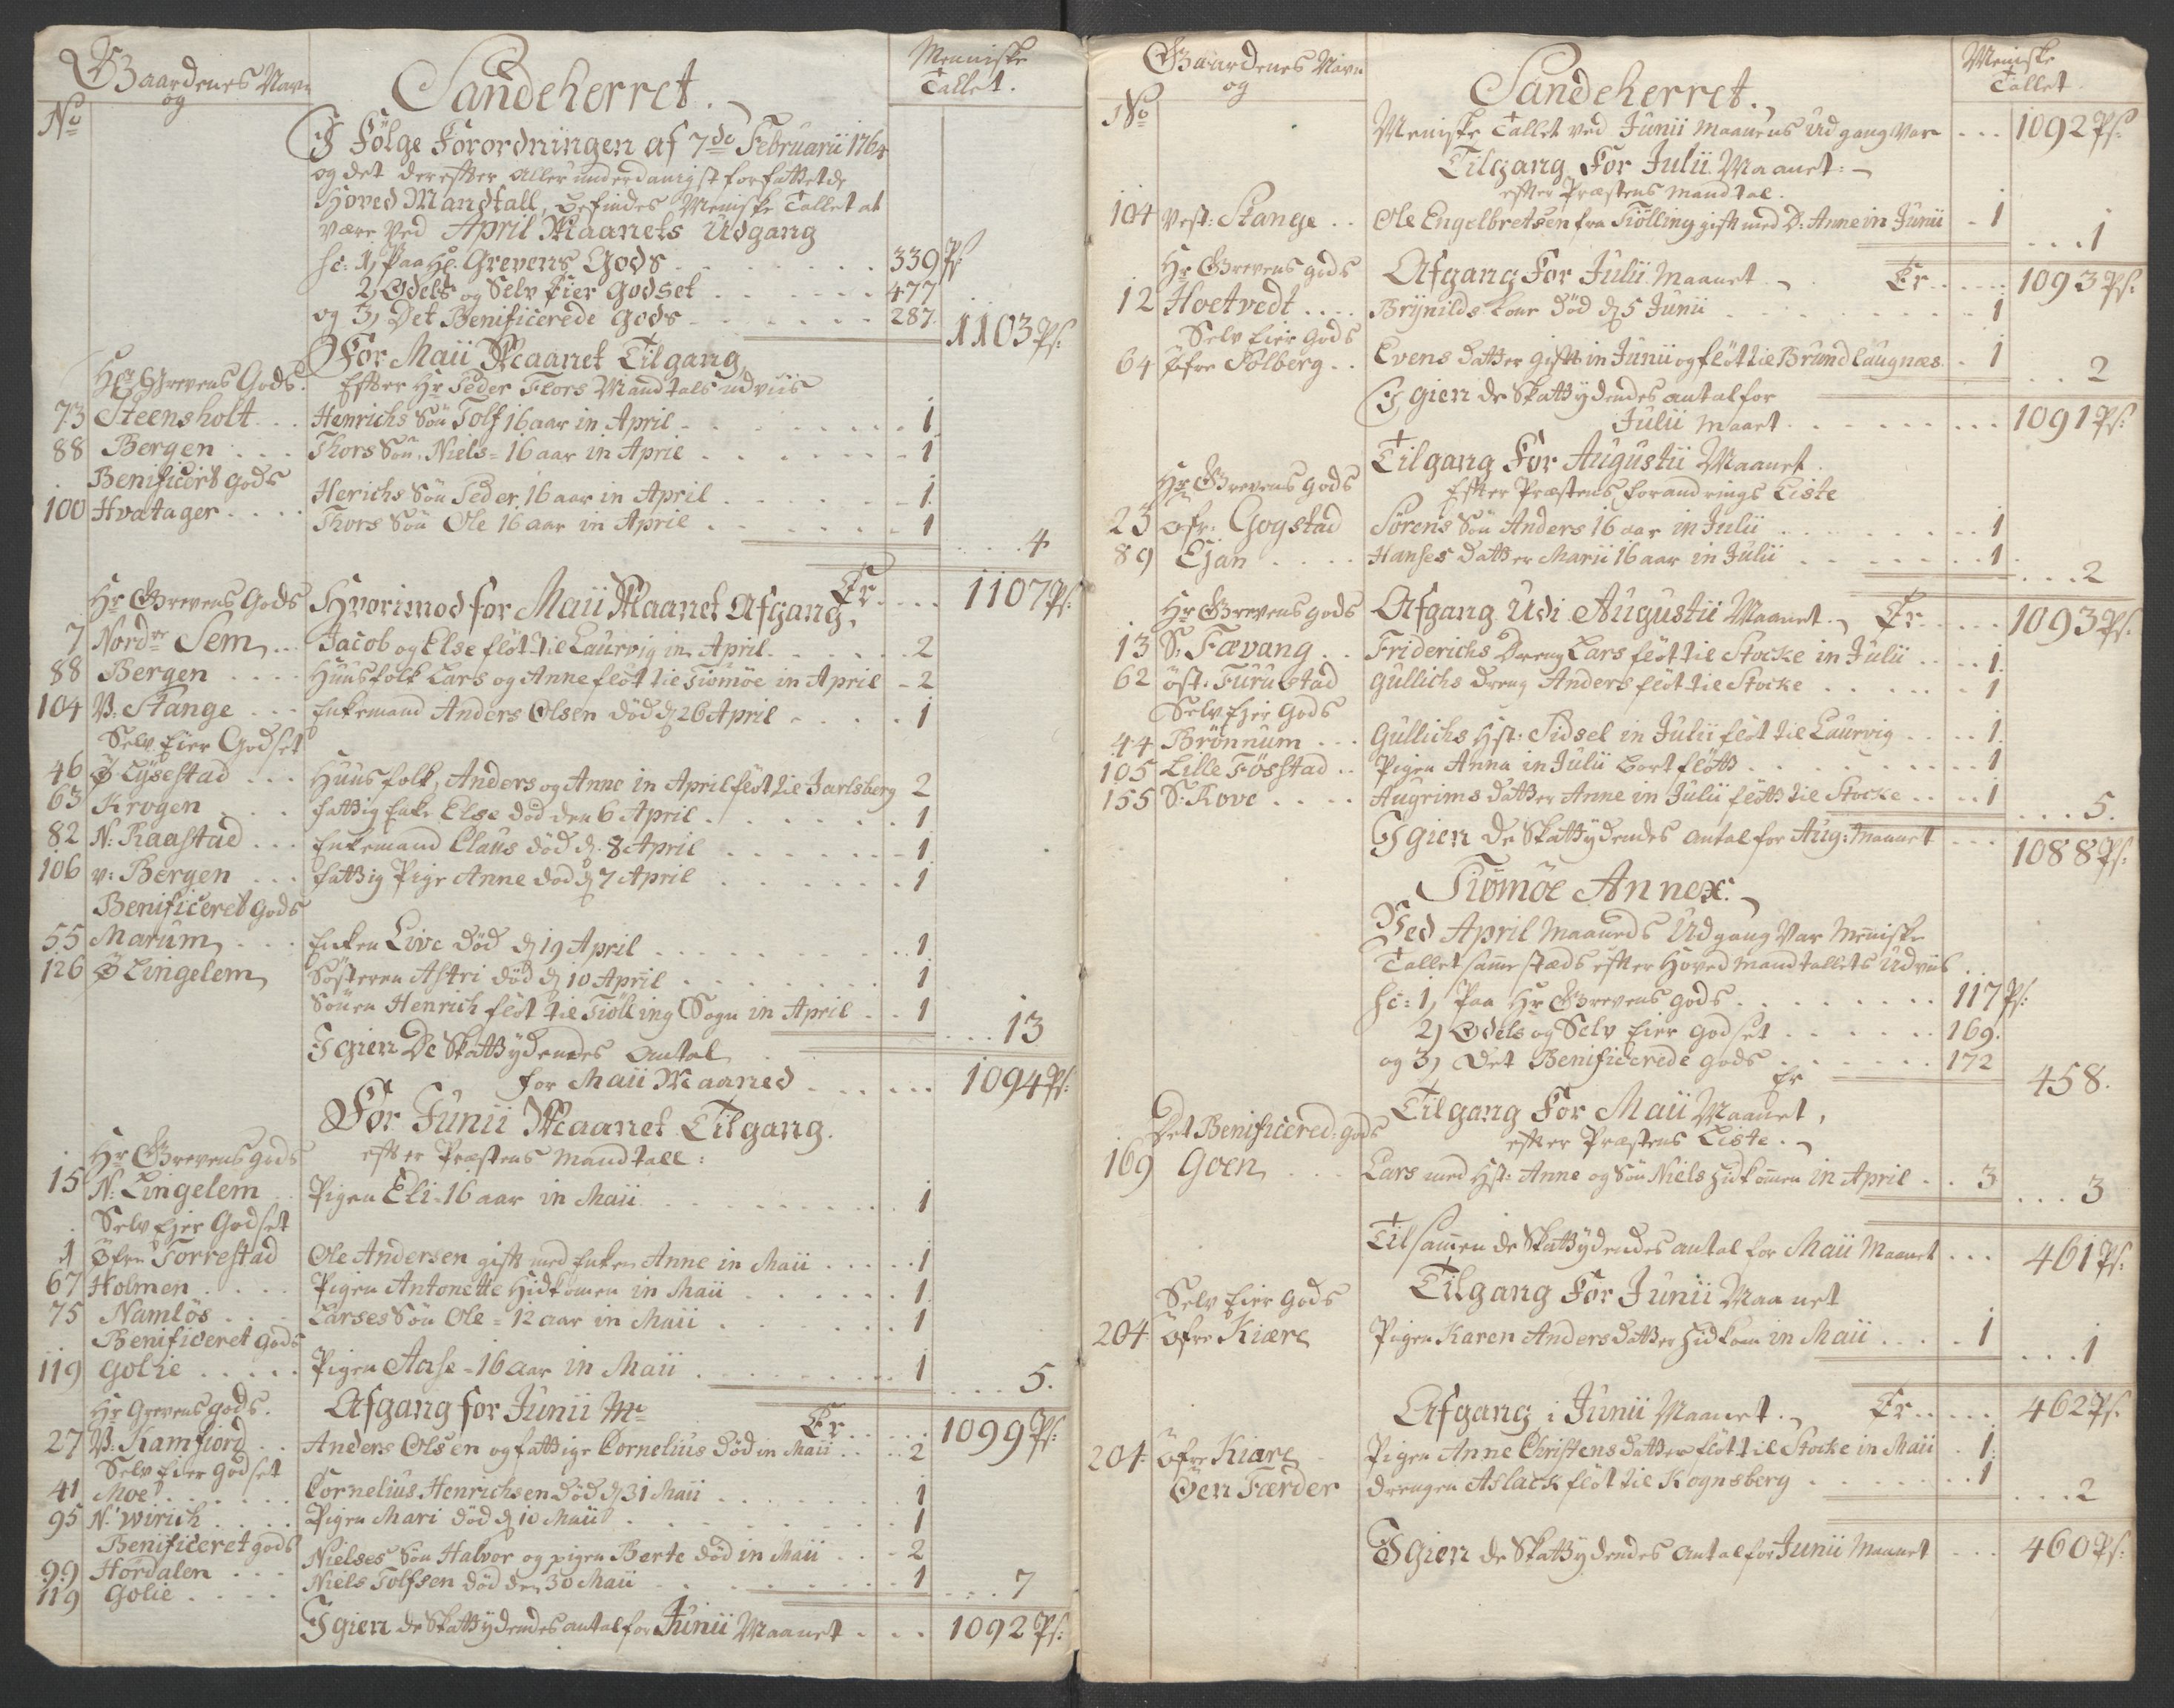 Gaardenes Navn
og
No
Sandeherret.
Menniske
Tallet.
I Følge Forordningen af 7de Februarii 1764
og det derefter allerunderdanigst forfattede
Hoved Mandtall, befindes Meniske Tallet at
være ved April Maanets Udgang
sc: 1, Paa Hr. Grevens Gods 339 Ps
2, Odels og Selv Eier Godset 477
og 3, Det Benificerede Gods 287. 1103 Ps:
For Maii Maanet Tilgang
Hr Grevens Gods. Efter Hr Peder Flors Mandtals udviis
73 Steensholt Henrichs Søn Tolf 16 aar in April 1
88 Bergen Thors Søn, Niels = 16 aar in April 1
Benificert gods
100 Hvatager Herichs Søn Peder 16 aar in April 1
Thors Søn Ole 16 aar in April 1
4
Er 1107 Ps:
Hr Grevens Gods Hvorimod for Maii Maanet Afgang,
7 Nordre Sem Jacob og Else fløt til Laurvig in April 2
88 Bergen Huusfolk Lars og Anne fløt til Tiømøe in April 2
104 V: Stange Enkemand Anders Olsen død d 26 April 1
Selv Eier Godset
46 Ø Lysestad Huusfolk, Anders og Anne in April fløt til Jarlsberg 2
63 Krogen fattig Enke Else død den 6 April 1
82 N: Raastad Enkemand Claus død d. 8 April 1
106 v: Bergen fattig Pige Anne død d 7 April 1
Benificeret gods
55 Marum Enken Live død d 19 April 1
126 Ø Lingelem Søsteren Astri død d 10 April 1
Sønen Henrich fløt til Tiølling Sogn in April 1
13
Igien De Skattÿdendes Antal
for Maii Maaned 1094 Ps:
For Junii Maanet Tilgang.
Hr Grevens gods efter Præstens Mandtall:
15 N: Lingelem Pigen Eli - 16 aar in Maii 1
Selv Ejer Godset
1 Øfre Torrestad Ole Andersen gift med Enken Anne in Maii 1
67 Holmen Pigen Antonette Hidkomen in Maii 1
75 Namløs Larses Søn Ole = 12 aar in Maii 1
Benificeret Gods
119 Golie Pigen Aase - 16 aar in Maii 1
5.
Hr Grevens gods. Afgang for Junii Mt Er 1099 Ps:
27 V: Kamfiord Anders Olsen og fattige Cornelius død in Maii 2
Selv Eier Godset
41 Moe Cornelius Henrichsen død d 31 Maii 1
95 N: Wirich Pigen Mari død d 10 Maii 1
Benificeret gods
99 Hordalen Nielses Søn Halvor og pigen Berte død in Maii 2
119 Golie Niels Tolfsen død den 30 Maii 1
7
Igien de Skattÿdendes antal for Junii Maanet 1092 Ps:
Gaardenes Navn
og
No
Sandeherret.
Meniske
Tallet.
Meniske Tallet ved Junii Maanens Udgang var 1092 Ps:
Tilgang For Julii Maanet:
efter Præstens Mandtal.
104 Vest: Stange Ole Engelbretsen fra Tiølling gift med D: Anne in Junii 1
1
Hr Grevens gods Afgang For Julii Maanet Er 1093 Ps:
12 Hoetvedt Brynilds Kone død d 5 Junii 1
Selv Eier Gods
64 Øfre Solberg Evens datter gift in Junii og fløt til Brundlaugnæs 1
2
Igien de Skattÿdendes antal for
Julii Maanet 1091 Ps:
Tilgang For Augustii Maanet.
Hr Grevens gods Efter Præstens forandrings Liste
23 øfr: Gogstad Sørens Søn Anders 16 aar in Julii 1
89 Ejan Hanses datter Marii 16 aar in Julii 1
2
Hr Grevens gods Afgang Udi Augustii Maanet Er 1093 Ps:
13 S: Fævang Friderichs Dreng Lars fløt til Stocke in Julii 1
62 øst: Furustad Gullichs dreng Anders fløt til Stocke 1
Selv Ejer Gods
44 Brønnum Gullichs Hst: Sidsel in Julii fløt til Laurvig 1
105 Lille Føsstad Pigen Anna in Julii bort fløtt 1
155 S: Rove Augrims datter Anne in Julii fløtt til Stocke 1
5.
Igien de Skattÿdendes antal for Aug: Maanet 1088 Ps:
Tiømøe Annex.
Ved April Maaneds Udgang var Meniske
Tallet samme stæds efter Hoved Mandtallets Udviis
sc: 1, Paa Hr Grevens gods 117 Ps:
2, Odels og Selv Eier godset 169.
og 3, Det Benificerede gods 172
Er 458.
Tilgang For Maii Maanet,
Det Benificered: gods efter Præstens Liste.
169 Goen Lars med Hst: Anne og Søn Niels hidkomen in April 3
3
Tilsamen de Skattÿdendes antal for Maii Maanet 461 Ps:
Tilgang For Junii Maanet
Selv Eier gods
204 Øfre Kiære Pigen Karen Andersdatter hidkom in Maii 1
1
Afgang i Junii Maanet. Er 462 Ps:
204 Øfre Kiære Pigen Anne Christensdatter fløt til Stocke in Maii 1
Øen Færder drengen Aslack fløt til Kognsberg 1
2
Igien de Skattÿdendes antal for Junii Maanet 460 Ps: